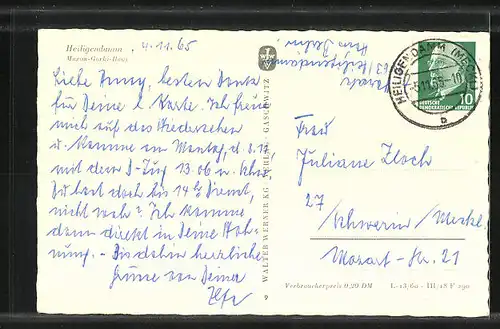 Heiligendamm
Maxim-Gorki-Haus
4.11.65
Liebe Anny, besten Dank
für Deine l. Karte. Ich freue
mich auf das Wiedersehen
u. komme am Montag, d. 8.11.
mit dem D-Zug 13.06 n.
Du hast doch bis 14 h Dienst,
nicht wahr? Ich komme
dann direkt in Deine Woh-
nung. - Bis dahin herzliche
Grüsse von Deiner
WALTER WERNER KG · BERLIN · GASCHWITZ
9
Heiligendamm
HEILIGENDAMM (MECKL)
-5.11.65-10
b
10
DEUTSCHE
DEMOKRATISCHE REPUBLIK
Frau
Juliane Zloch
27
Schwerin/Meckl.
Mozart-Str. 21
Verbraucherpreis 0,20 DM
L-13/60 - III/18 F 290